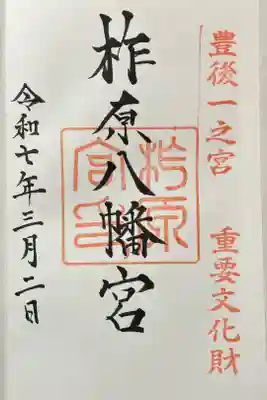 豊後一之宮　重要文化財
柞原八幡宮
柞原宮印
令和七年三月二日